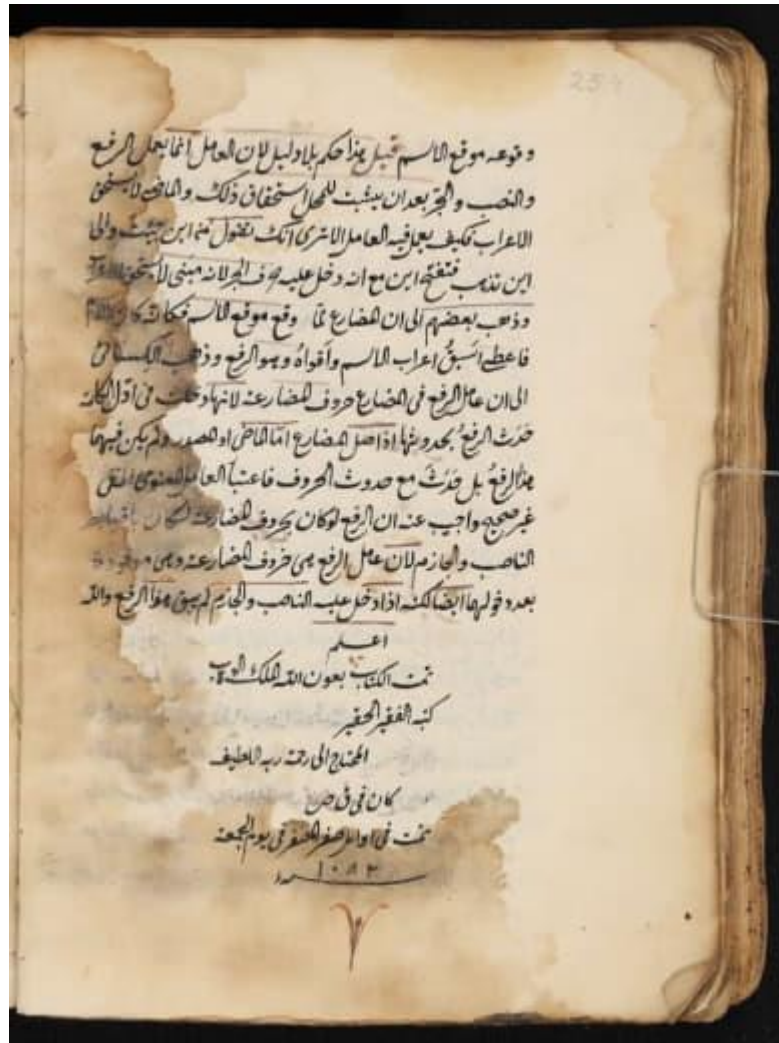 254
وقوعه موقع الاسم قيل هذا حكم بلا دليل لان العامل انما يعمل الرفع
والنصب والجر بعد ان يثبت للمحل استحقاق ذلك والماضى لا يستحق
الاعراب فكيف يعمل فيه العامل الا ترى انك تقول من اين جئت والى
اين تذهب فتفتح اين مع انه دخل عليه حرف الجر لانه مبنى لا يستحق
وذهب بعضهم الى ان المضارع لما وقع موقع الاسم فكانه
فاعطى اسبقُ اعراب الاسم واقواهُ وهو الرفع وذهب الكسائى
الى ان عامل الرفع فى المضارع حروف المضارعة لانها دخلت فى اول الكلمة
حَدَثَ الرفعُ بحدوثها اذا اصل المضارع اما الماضى او المصدر ولم يكن فيهما
هذا الرفعُ بل حَدَثَ مع حدوث الحروف العامل المعنوى
غير صحيح واجيب عنه ان الرفع لو كان بحروف المضارعة لكان
الناصب والجازم لان عامل الرفع هى حروف المضارعة وهى
بعد دخولهما ايضا لكنه اذا دخل عليه الناصب والجازم لم يبق هذا الرفع والله
اعلم
تمت الكتاب بعون الله الملك الوهاب
كتبه الفقير الحقير
المحتاج الى رحمة ربه اللطيف
كان فى
تمت فى صفر المظفر فى يوم الجمعة
سنه ١٠٨٣